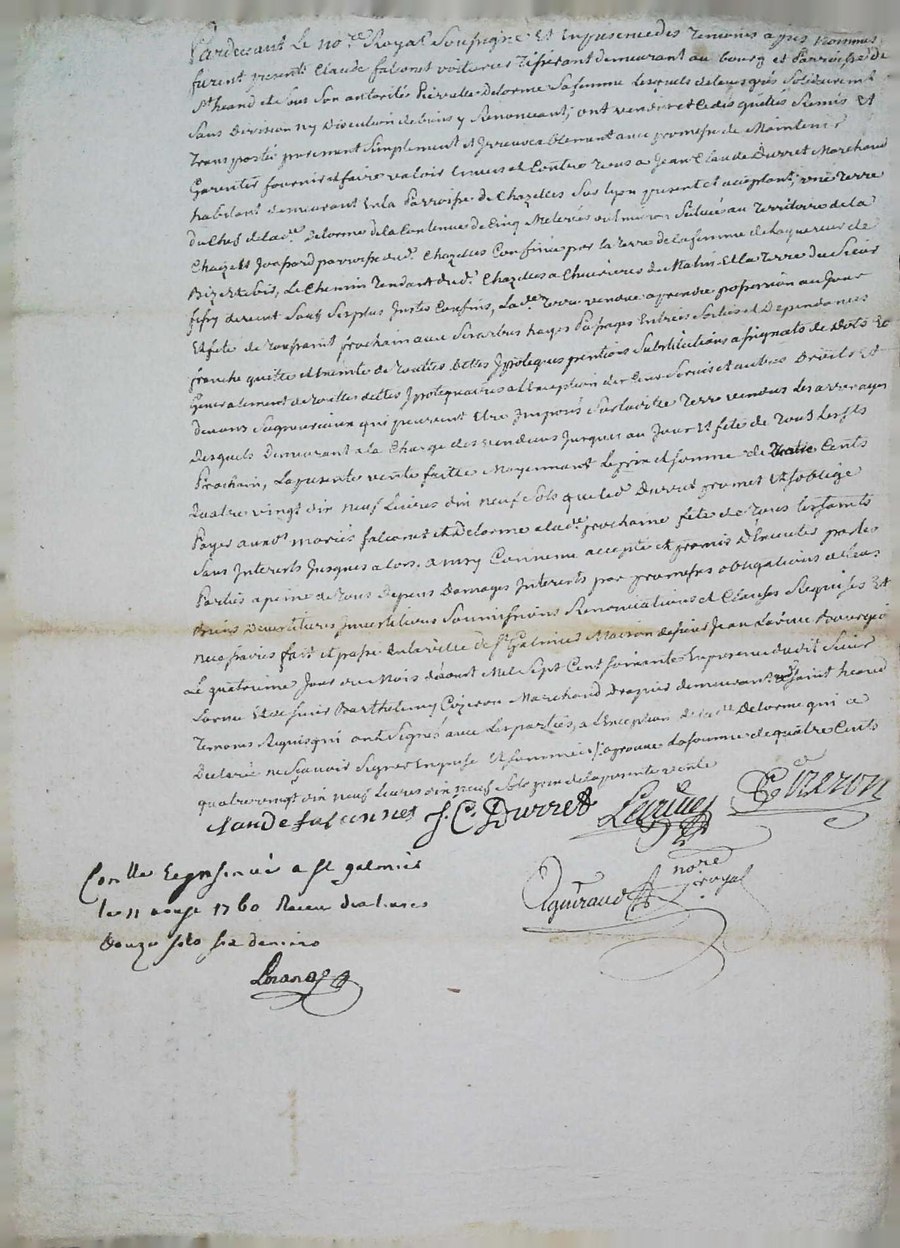 Pardevant Le no.re Royal Soussigné Et En presence des Temoins apres Nommés
furent present Claude falconet voiturier demeurant au bourg et Parroisse de
St heand et de Sous Son autorité Pierrette Delorme Sa femme Lesquels de leurs gré Solidairement
Sans Division ny Discution de biens y Renoncant, ont vendu et Cedé quitté Remis Et
Transporté purement Simplement et Irrevocablement avec promesse de Maintenir
Garentir fournir et faire valoir Envers et Contre Tous a Jean Claude Durret Marchand
habitant Demeurant En la Parroisse de Chazelles Sur Lyon present et acceptant, une Terre
du Chef de lad.e Delorme de la Contenue de Cinq Meterées ou Environ Située au Territoire de la
parroisse dud. Chazelles Confinée par la Terre de la femme de
Le Chemin Tendant dud. Chazelles a Chevrieres de Matin Et la Terre du Sieur
de vent Sauf Ses plus Justes Confins, Lad.e Terre vendue a prendre possession au Jour
Et fête de Toussaint prochain avec Ses arbres hayes Passages Entrées Sorties et Dependances
franche quitte et Exempte de Toutes Dettes Ypoteques pentions Substitutions assignats de Dots Et
Generalement de Toutes dettes Ypotequaires a l'Exception des Cens Servis et autres Droits Et
Devoirs Seigneuriaux qui peuvent Etre Imposés Sur lad.te Terre vendue Les arrerages
Desquels Demeurant a la Charge des vendeurs Jusques au Jour Et fête de Tous Les Sts
Prochain, La presente vente faitte Moyennant Le prix et Somme de Cents
Quatre vingt dix neuf Livres dix neuf Sols que led. Durret promet Et S'oblige
Payer auxd. mariés falconet et Delorme a lad.e prochaine fête de Tous les Saints
Sans Interets Jusques alors. ainsy Convenu accepté et promis d'Executer par les
Parties a peine de Tous Depens Domages Interets par promesses obligations de Leurs
Biens Soumissions Renonciations et Clauses Requises Et
fait et passé En la ville de St Galmier Maison de Sieur Jean
Le quatrieme Jour du Mois d'aoust Mil Sept Cent Soixante En presence dudit Sieur
Et de Sieur Barthelemy Cozeron Marchand Drapier demeurant a Saint heand
Temoins Requis qui ont Signés avec Les parties, a l'Exception de lad.te Delorme qui a
Declaré ne Scavoir Signer Enquise Et Sommée. J'aprouve La Somme de quatre Cents
quatre vingt dix neuf Livres dix neuf Sols prix de la presente vente
Claude falconnet J. C. Durret Cozeron
Aguiraud nore royal
Conlle a St galmier
le 11 aoust 1760 Receu
Douze sols six deniers